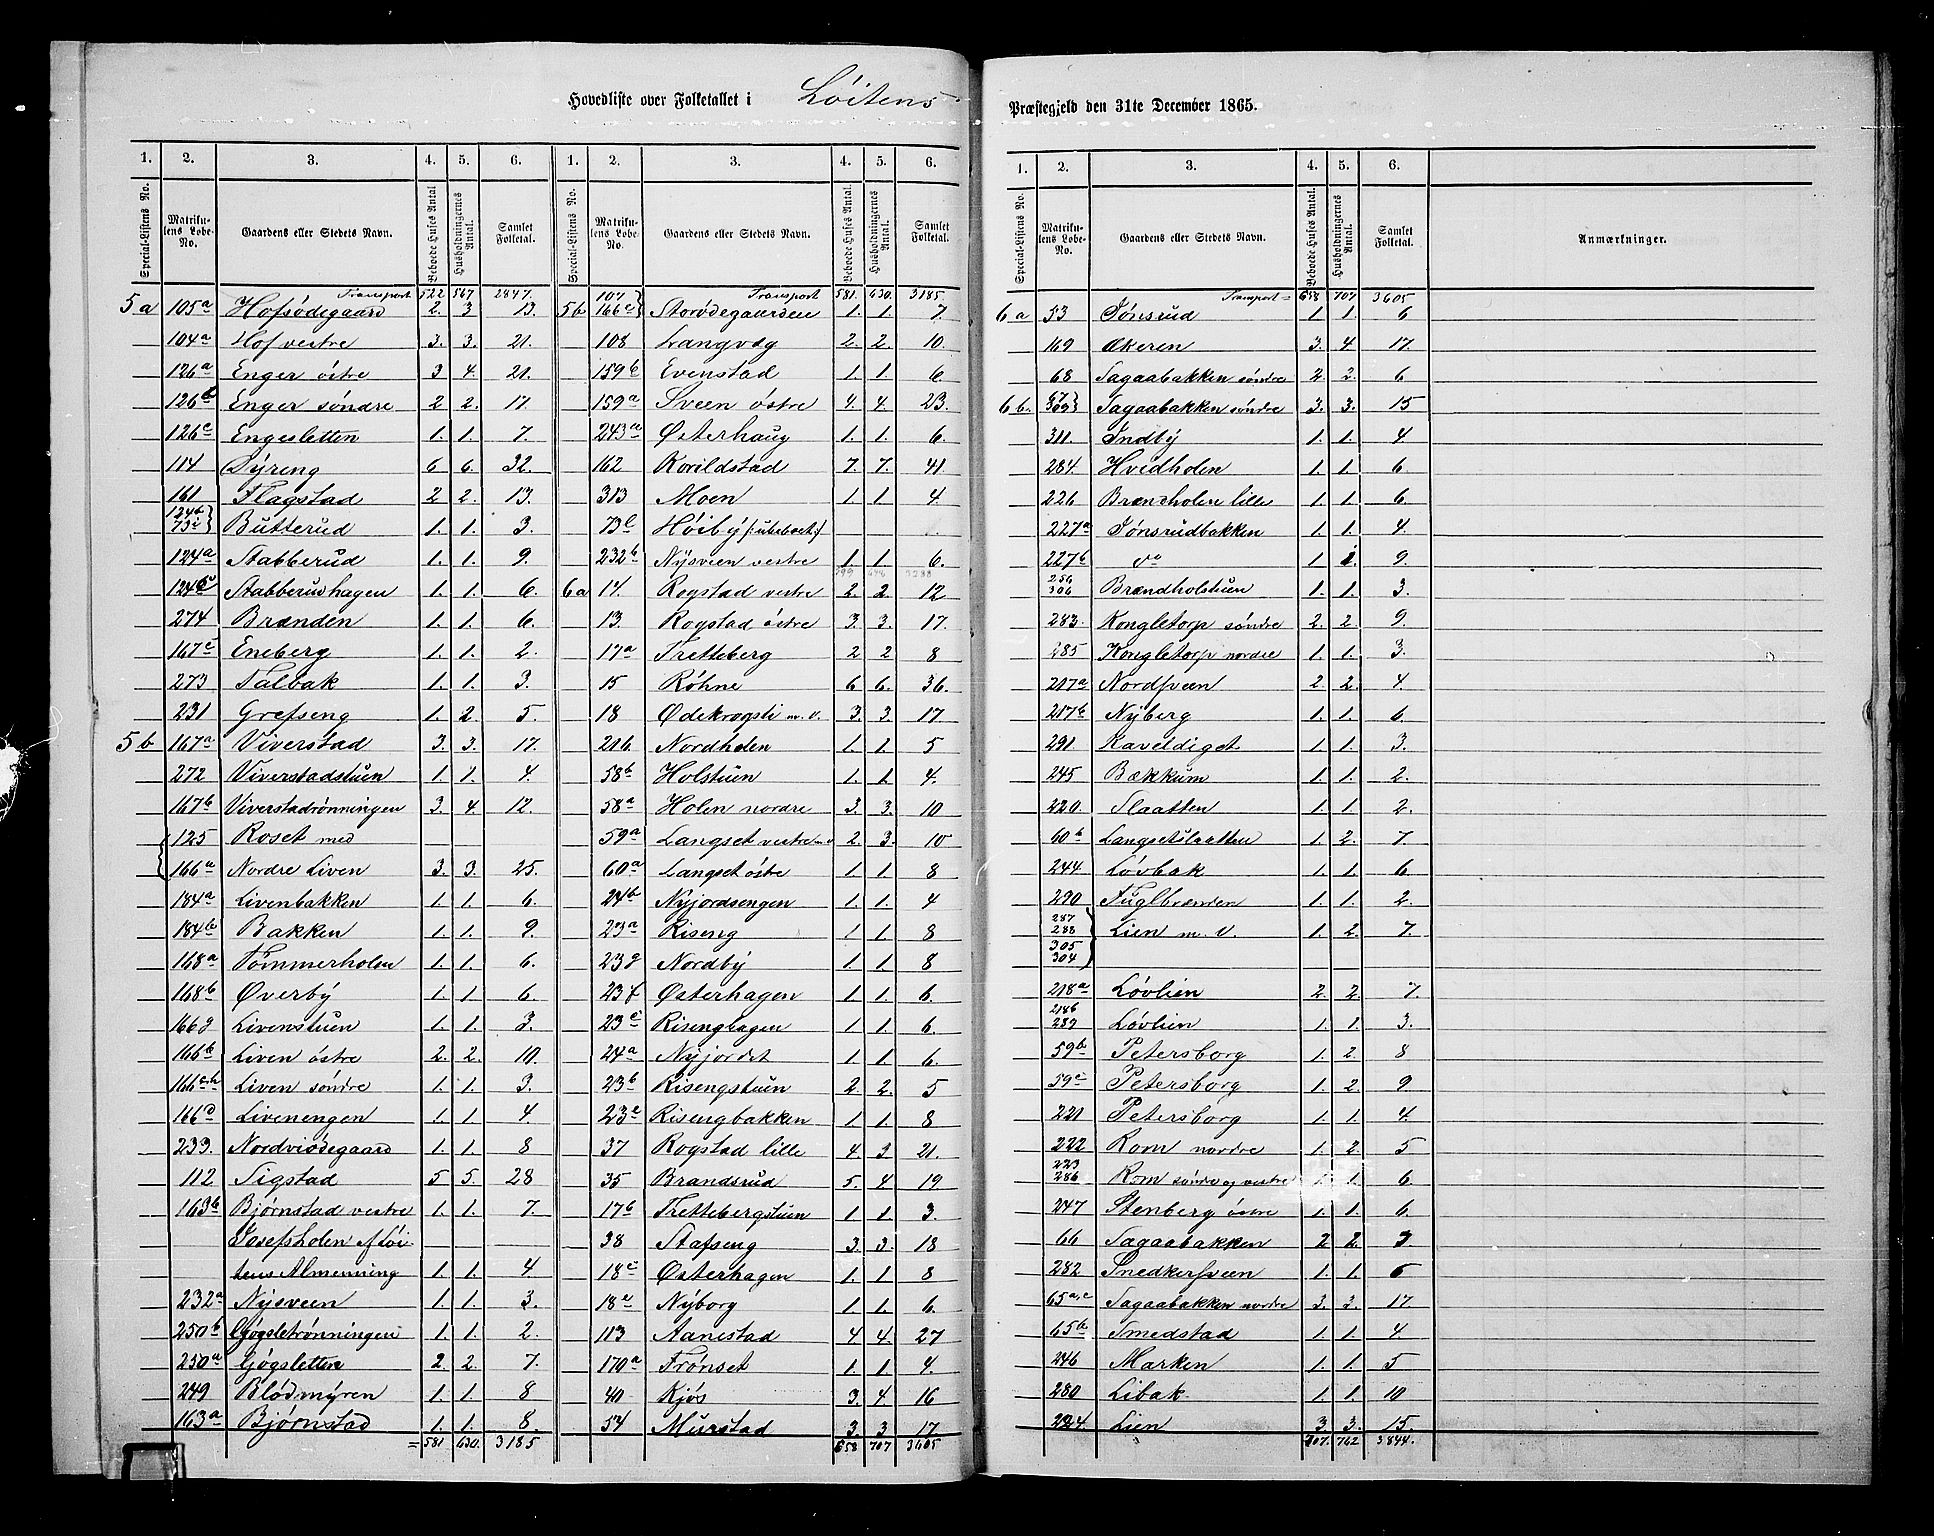 Hovedliste over Folketallet i Löitens
1. 2. 3. 4. 5. 6. 1. 2. 3. 4. 5. 6.
Special-Listens No. Matrikulens Løbe-No. Gaardens eller Stedets Navn. Beboede Huses Antal Husholdningernes Antal. Samlet Folketal. Special-Listens No. Matrikulens Løbe-No. Gaardens eller Stedets Navn. Beboede Huses Antal. Husholdningernes Antal. Samlet Folketal.
Transport 522 567 2847.
5a 105a Hofsödegaard 2. 3 13.
104a Hof vestre 3. 3. 21.
126a Enger östre 3 4. 21.
126b Enger söndre 2 2. 17.
126c Engesletten 1. 1. 7.
114 Dyreng 6 6. 32.
161 Flagstad 2 2. 13.
124b 73i } Butterud 1. 1. 3.
124a Stabberud 1. 1. 9.
124c Stabberudhagen 1. 1. 6.
274 Brænden 1. 1. 6.
167c Eneberg 1. 1. 2.
273 Talbak 1. 1. 3.
231 Grefseng 1. 2. 5.
5b 167a Viverstad 3. 3. 17.
272 Viverstadstuen 1. 1. 4.
167b Viverstadrönningen 3. 4. 12.
125 Roset med
166a Nordre Liven 3. 3. 25.
184a Livenbakken 1. 1. 6.
184b Bakken 1. 1. 9.
168a Tömmerholen 1. 1. 6.
168b Överby 1. 1 6.
166g Livenstuen 1. 1. 3.
166b Liven östre 2. 2. 10.
166c,h Liven söndre 1. 1. 3.
166d Livenengen 1. 1. 4.
233. Nordviödegaard 1. 1. 8
112 Sigstad 5 5. 28
163b Björnstad vestre 1. 1. 7.
Josefsholen af Löi-
tens Almenning 1. 1. 4
232a Nysveen 1. 1. 3.
250b Gjögsletrönningen 1. 1. 2.
250a Gjögsletten 2. 2. 7.
249 Blödmyren 1. 1. 8
163a Björnstad 1. 1. 8.
= 581 630. 3185
Transport 581. 630. 3185
5b 107 166e } Storödegaardene 1. 1. 7.
108 Langvæg 2. 2. 10.
159b Evenstad 1. 1. 6.
159a Sveen östre 4. 4. 23.
243a Österhaug 1. 1. 6.
162 Korildstad 7. 7. 41
313 Moen 1 1. 4.
73l Höiby (: ubeboet :)
232b Nysveen vestre 1. 1 6.
6a 14. Rogstad vestre 2. 2. 12
13. Rogstad östre 3. 3. 17.
17a Tretteberg 2 2 8
15 Röhne 6 6. 36.
18 Ödekrogsti m. v. 3. 3. 17
216. Nordholen 1. 1. 5
58b Holstuen 1. 1 4.
58a Holen nordre 3. 3. 10
59a Langset vestre m. v 2. 3. 10
60a Langset östre 1. 1 8
24b Nyjordsengen 1. 1. 4
23a Riseng 1. 1. 8
23g Nordby 1. 1 8
23f Österhagen 1 1. 6.
23c Risenghagen 1. 1 6.
24a Nyjordet 1. 1 6.
23b Risengstuen 2 2. 5
23e Risengbakken 1. 1. 8
37 Rogstad lille 4 3 21.
35 Brandsrud 5. 4. 19
17b Trettebergstuen 1 1. 3.
38 Stafseng 3. 3. 18
18c Österhagen 1. 1 8
18e Nyborg 1. 1. 6.
113 Aanestad 4 4. 27
170a Frönset 1. 1. 4.
40. Kjös 3. 4 16
54 Murstad 3. 3 17
658 707 3605
Præstegjeld den 31te December 1865.
1. 2. 3. 4. 5. 6.
Special-Listens No. Matrikulens Løbe-No. Gaardens eller Stedets Navn. Beboede Huses Antal. Husholdningernes Antal. Samlet Folketal. Anmærkninger.
Transport = 658 707. 3605
6a 53 Jönsrud 1 1. 6
169 Ækeren 3. 4 17.
68 Sagaabakken söndre 2. 2. 6
6b. 67 309 } Sagaabakken söndre 3. 3. 15
311. Indby 1. 1. 4
284. Hvidholen 1. 1. 6
226 Brændholen lille 1. 1. 6
227a Jönsrudbakken 1. 1. 4.
227b do 1 1. 9.
256 306 Brændholstuen 1. 1. 3.
283. Kongletorp söndre 2. 2. 9.
285 Kongletorp nordre 1. 1. 3.
217a Nordsveen 2. 2. 4.
217b Nyberg 1. 1. 6.
291 Kaveldiget 1. 1. 3.
245 Bækkum 1. 1. 2.
220. Slaatten 1. 1. 2.
60b Langsetslaatten 1. 2. 7.
244. Lövbak 1. 1. 6
290 Fuglbrænden 1. 1. 2.
287 288 305 304 } Lien m. V. 1. 2. 7.
218a Lövlien 2. 2. 7.
218b 289 Lövlien 1. 1. 3.
59b Petersborg 1. 2. 8
59c Petersborg 1. 2. 9
221 Petersborg 1. 1. 4.
222 Rom nordre 1. 2. 5
223 286 Rom söndre og vestre 1. 1. 6.
247 Stenberg östre 1. 1. 6.
66 Sagaabakken 2 2.
282 Snedkersveen 1. 1. 6
65a,c Sagaabakken nordre 3. 3. 17
65b Smedstad 1 1. 4.
246 Marken 1. 1. 5
280 Libak. 1. 1. 10
224. Lien 3. 3. 15
707. 762 3844.